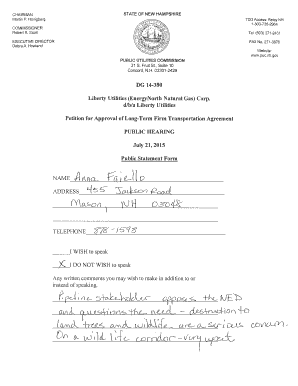 CHAIRMAN
Martin P. Honigberg
COMMISSIONER
Robert R. Scott
EXECUTIVE DIRECTOR
Debra A. Howland
STATE OF NEW HAMPSHIRE
PUBLIC UTILITIES COMMISSION
21 S. Fruit St., Suite 10
Concord, N.H. 03301-2429
TDD Access: Relay NH
1-800-735-2964
Tel. (603) 271-2431
FAX No. 271-3878
Website:
www.puc.nh.gov
DG 14-380
Liberty Utilities (EnergyNorth Natural Gas) Corp.
d/b/a Liberty Utilities
Petition for Approval of Long-Term Firm Transportation Agreement
PUBLIC HEARING
July 21, 2015
Public Statement Form
NAME Anna Faiello
ADDRESS 455 Jackson Road
Mason, NH 03048
TELEPHONE 878-1598
I WISH to speak
X I DO NOT WISH to speak
Any written comments you may wish to make in addition to or
instead of speaking.
Pipeline stakeholder opposes the NED
and questions the need - destruction to
land trees and wildlife are a serious concern.
On a wild life corridor - very upset